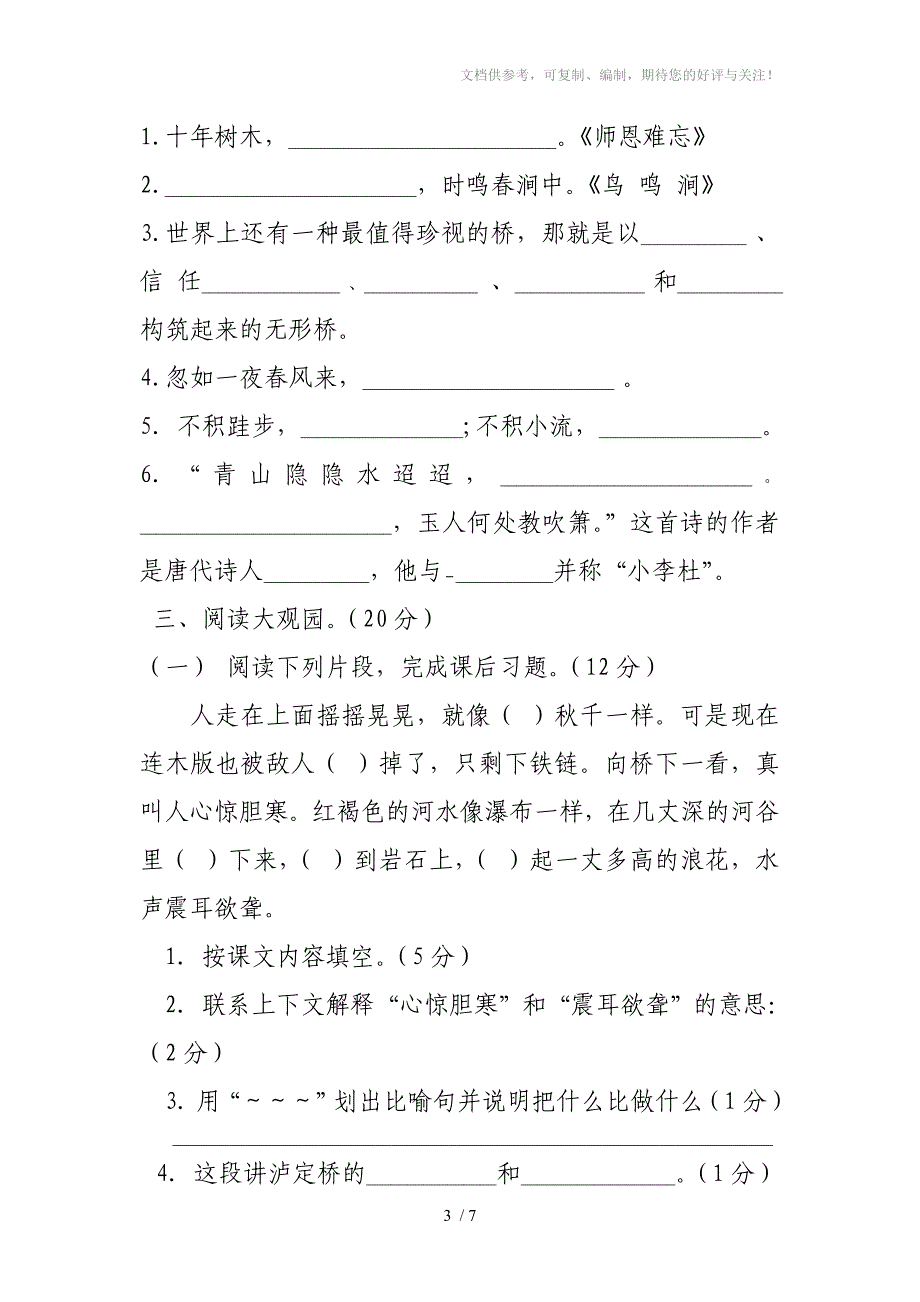 文档供参考，可复制、编制，期待您的好评与关注！
1.十年树木，____________________。《师恩难忘》
2.____________________，时鸣春涧中。《鸟 鸣 涧》
3.世界上还有一种最值得珍视的桥，那就是以________ 、
信 任__________ 、________ 、__________ 和________
构筑起来的无形桥。
4.忽如一夜春风来，____________________ 。
5. 不积跬步，____________;不积小流，____________。
6. “青山隐隐水迢迢，____________________。
____________________，玉人何处教吹箫。”这首诗的作者
是唐代诗人________，他与_________并称“小李杜”。
三、阅读大观园。(20分)
（一） 阅读下列片段，完成课后习题。(12分)
人走在上面摇摇晃晃，就像（ ）秋千一样。可是现在
连木版也被敌人（ ）掉了，只剩下铁链。向桥下一看，真
叫人心惊胆寒。红褐色的河水像瀑布一样，在几丈深的河谷
里（ ）下来，（ ）到岩石上，（ ）起一丈多高的浪花，水
声震耳欲聋。
1. 按课文内容填空。(5分)
2. 联系上下文解释“心惊胆寒”和“震耳欲聋”的意思:
(2分)
3. 用“~~~”划出比喻句并说明把什么比做什么(1分)
______________________________________________
4. 这段讲泸定桥的__________和____________。(1分)
3 / 7